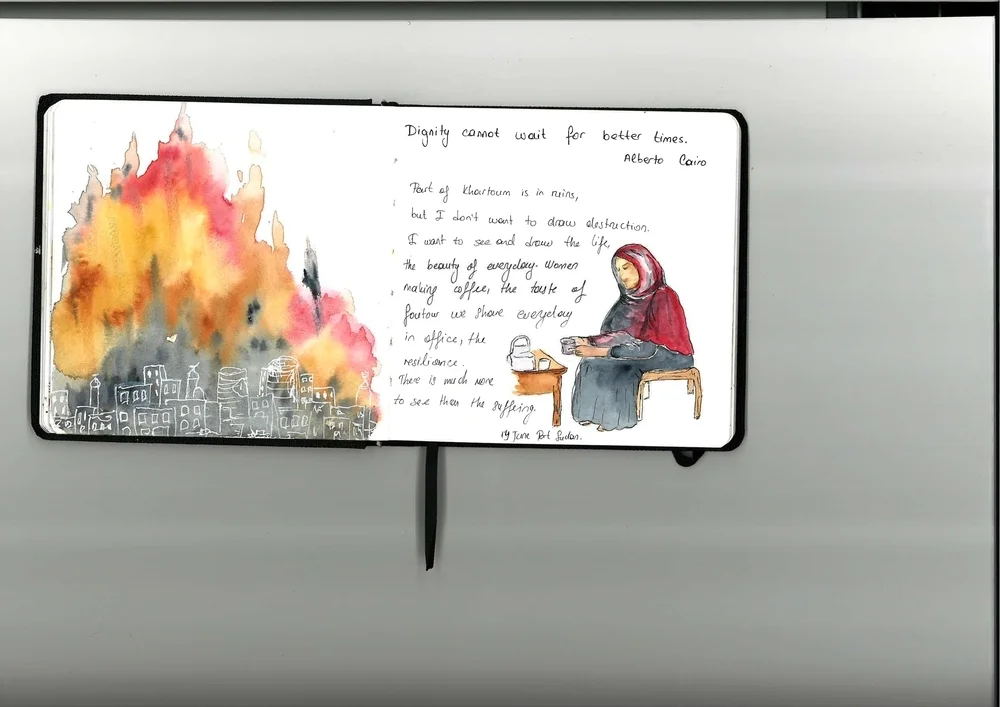 Dignity cannot wait for better times.
Alberto Cairo
Part of Khartoum is in ruins,
but I don't want to draw destruction.
I want to see and draw the life,
the beauty of everyday. Women
making coffee, the taste of
foutour we share everyday
in office, the
resilience.
There is much more
to see than the suffering.
19 June Port Sudan.